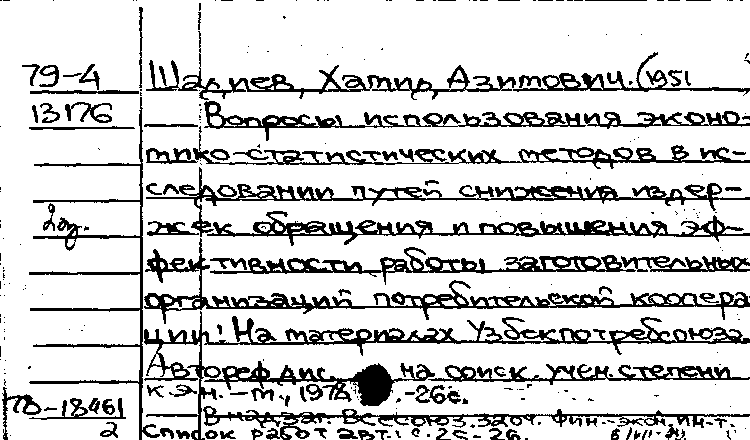 79-4 Шадиев, Хатир Азимович. (1951
13176 Вопросы использования эконо-
мико-статистических методов в ис-
следовании путей снижения издер-
жек обращения и повышения эф-
фективности работы заготовительных
организаций потребительской коопера
ции! На материалах Узбекпотребсоюза.
Автореф. дис. на соиск. учен. степени
к.э.н. - м., 1978. -26с.
78-18461 В надзаг.: Всесоюз. заоч. фин.-экон. ин-т.
2 Список работ авт.: с. 25-26.